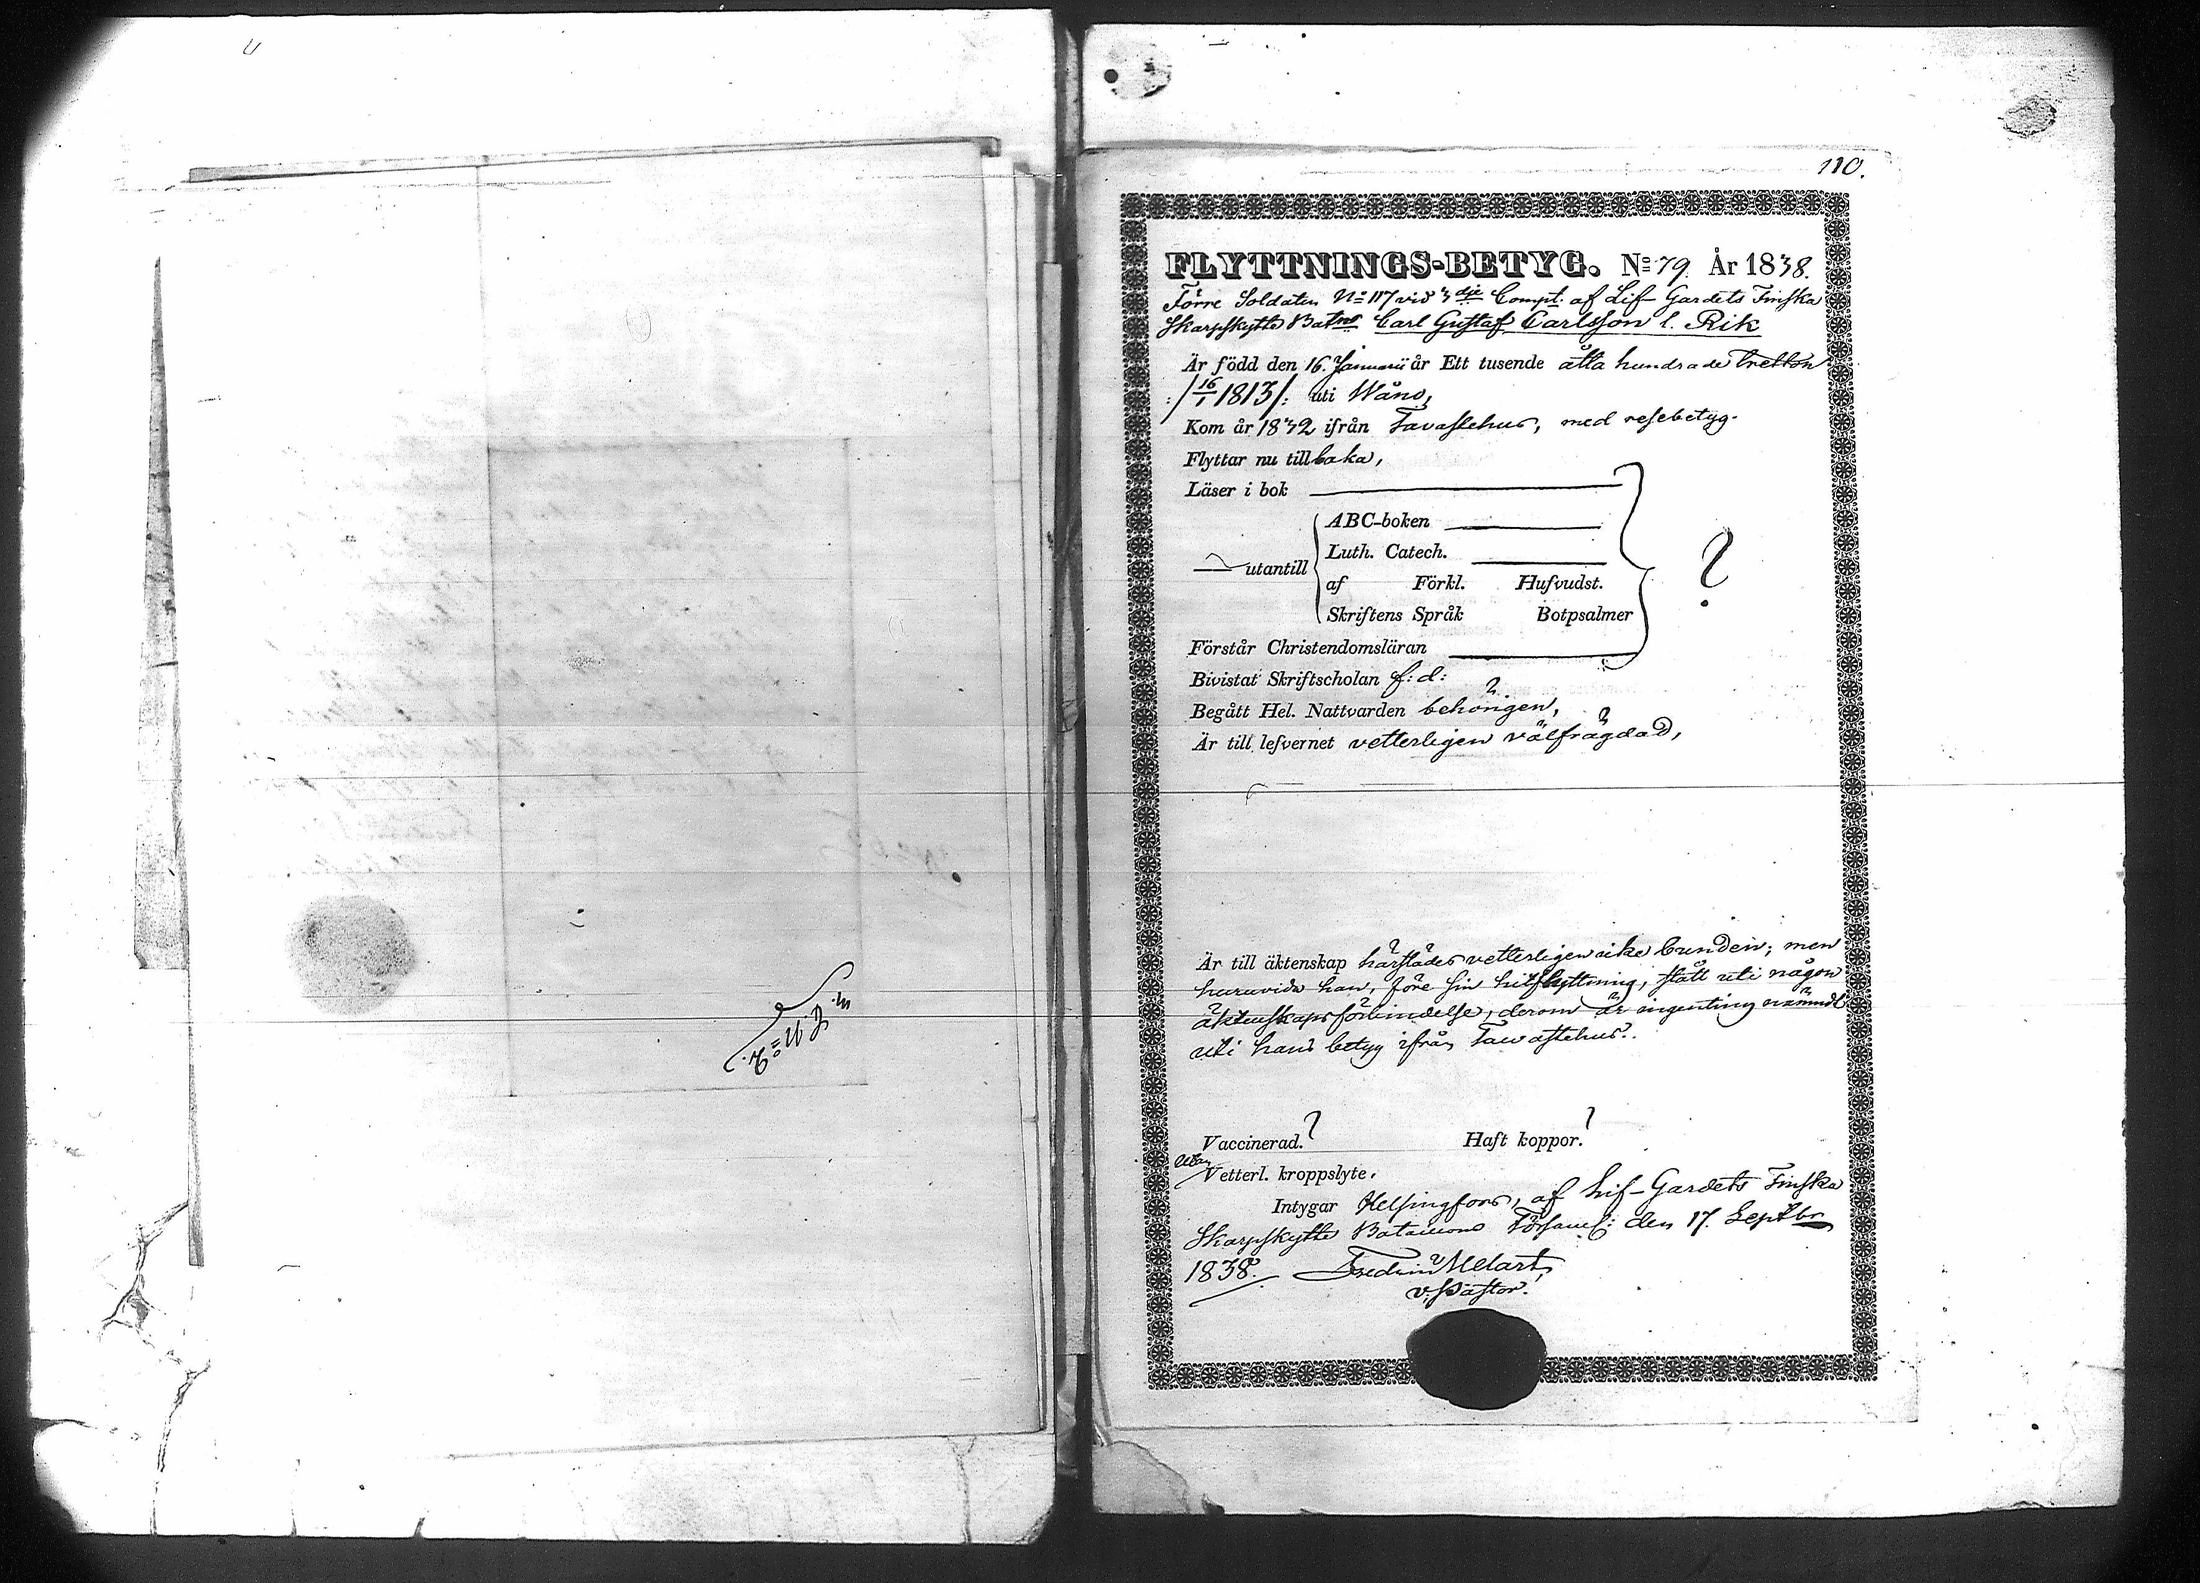 110.
FLYTTNINGS-BETYG. No 79. År 1838.
Förre Soldaten No 117 vid 3dje Compt. af Lif-Gardets Finska
Skarpskytte Batns Carl Gustaf Carlsson l. Rik
Är född den 16. Januarii år Ett tusende åtta hundrade tretton
:/16/1 1813/: uti Wånå,
Kom år 1832 ifrån Tavastehus, med resebetyg.
Flyttar nu tillbaka,
Läser i bok
ABC-boken
Luth. Catech.
utantill
af Förkl. Hufvudst.
Skriftens Språk Botpsalmer
?
Förstår Christendomsläran
Bivistat Skriftscholan f: d:
Begått Hel. Nattvarden behörigen,
Är till lefvernet vetterligen välfrägdad,
Är till äktenskap härstädes vetterligen icke bunden; men
huruvida han, före sin hitflyttning, stått uti någon
äktenskapsförbindelse, derom är ingenting nämndt
uti hans betyg ifrån Tawastehus.
Vaccinerad. ? Haft koppor. ?
utan
Vetterl. kroppslyte.
Intygar Helsingfors, af Lif-Gardets Finska
Skarpskytte Bataillons Församl: den 17. Septbr
1838. Fredric Melart,
v. Pastor.